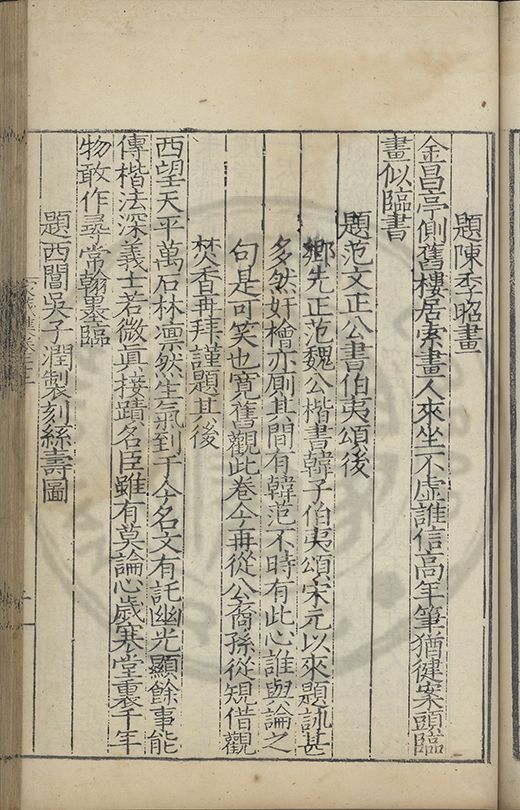 題陳季昭畫
金昌亭側舊樓居索畫人來坐不虛誰信高年筆猶健案頭臨
畫似臨書
題范文正公書伯夷頌後
鄉先正范魏公楷書韓子伯夷頌宋元以來題述甚
多然奸檜亦厠其間有韓范不時有此心誰與論之
句是可笑也寛舊觀此卷今再從公裔孫從規借觀
焚香再拜謹題其後
西望天平萬石林凛然生氣到于今名文有託幽光顯餘事能
傳楷法深義士若微眞接蹟名臣雖有莫論心歲寒堂裏千年
物敢作尋常翰墨臨
題西誾吳子潤製刻絲壽圖